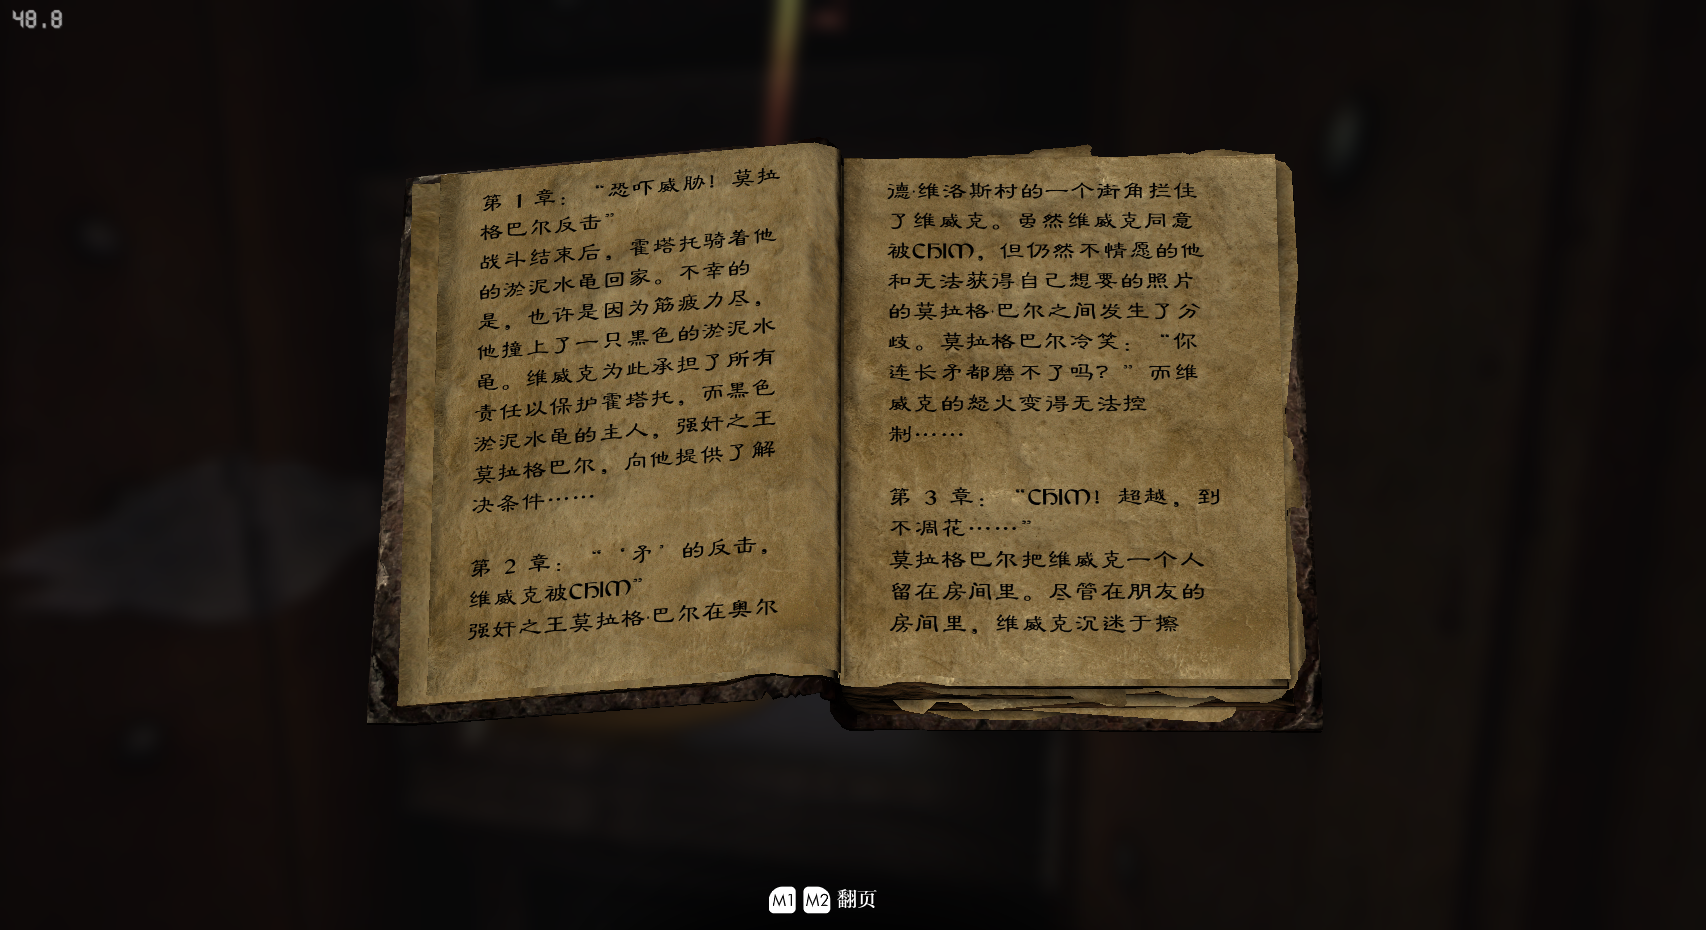 48.8
第 1 章：“恐吓威胁！莫拉
格巴尔反击”
战斗结束后，霍塔托骑着他
的淤泥水黾回家。不幸的
是，也许是因为筋疲力尽，
他撞上了一只黑色的淤泥水
黾。维威克为此承担了所有
责任以保护霍塔托，而黑色
淤泥水黾的主人，强奸之王
莫拉格巴尔，向他提供了解
决条件……
第 2 章：“‘矛’的反击，
维威克被CHIM”
强奸之王莫拉格·巴尔在奥尔
德·维洛斯村的一个街角拦住
了维威克。虽然维威克同意
被CHIM，但仍然不情愿的他
和无法获得自己想要的照片
的莫拉格·巴尔之间发生了分
歧。莫拉格巴尔冷笑：“你
连长矛都磨不了吗？”而维
威克的怒火变得无法控
制……
第 3 章：“CHIM！超越，到
不凋花……”
莫拉格巴尔把维威克一个人
留在房间里。尽管在朋友的
房间里，维威克沉迷于擦
M1 M2 翻页